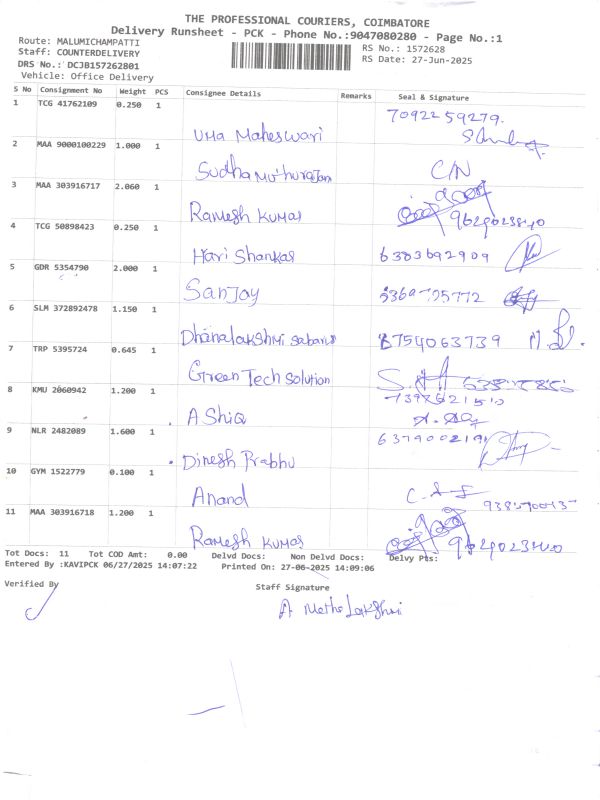 THE PROFESSIONAL COURIERS, COIMBATORE
Delivery Runsheet - PCK - Phone No.:9047080280 - Page No.:1
Route: MALUMICHAMPATTI
Staff: COUNTERDELIVERY
DRS No.: DCJB157262801
Vehicle: Office Delivery
RS No.: 1572628
RS Date: 27-Jun-2025
S No Consignment No Weight PCS Consignee Details Remarks Seal & Signature
1 TCG 41762109 0.250 1
Uma Maheswari 7092259279.
2 MAA 9000100229 1.000 1
Sudha Muthurajan C/N
3 MAA 303916717 2.060 1
Ramesh Kumar 9629023840
4 TCG 50898423 0.250 1
Hari Shankar 6383692909
5 GDR 5354790 2.000 1
Sanjay
6 SLM 372892478 1.150 1
Dhanalakshmi 8754063739
7 TRP 5395724 0.645 1
Green Tech solution
8 KMU 2060942 1.200 1
AShiq
9 NLR 2482089 1.600 1
Dinesh Prabhu 6379002191
10 GYM 1522779 0.100 1
Anand
11 MAA 303916718 1.200 1
Ramesh Kumar 9629023840
Tot Docs: 11 Tot COD Amt: 0.00 Delvd Docs: Non Delvd Docs: Delvy Pts:
Entered By :KAVIPCK 06/27/2025 14:07:22 Printed On: 27-06-2025 14:09:06
Verified By Staff Signature